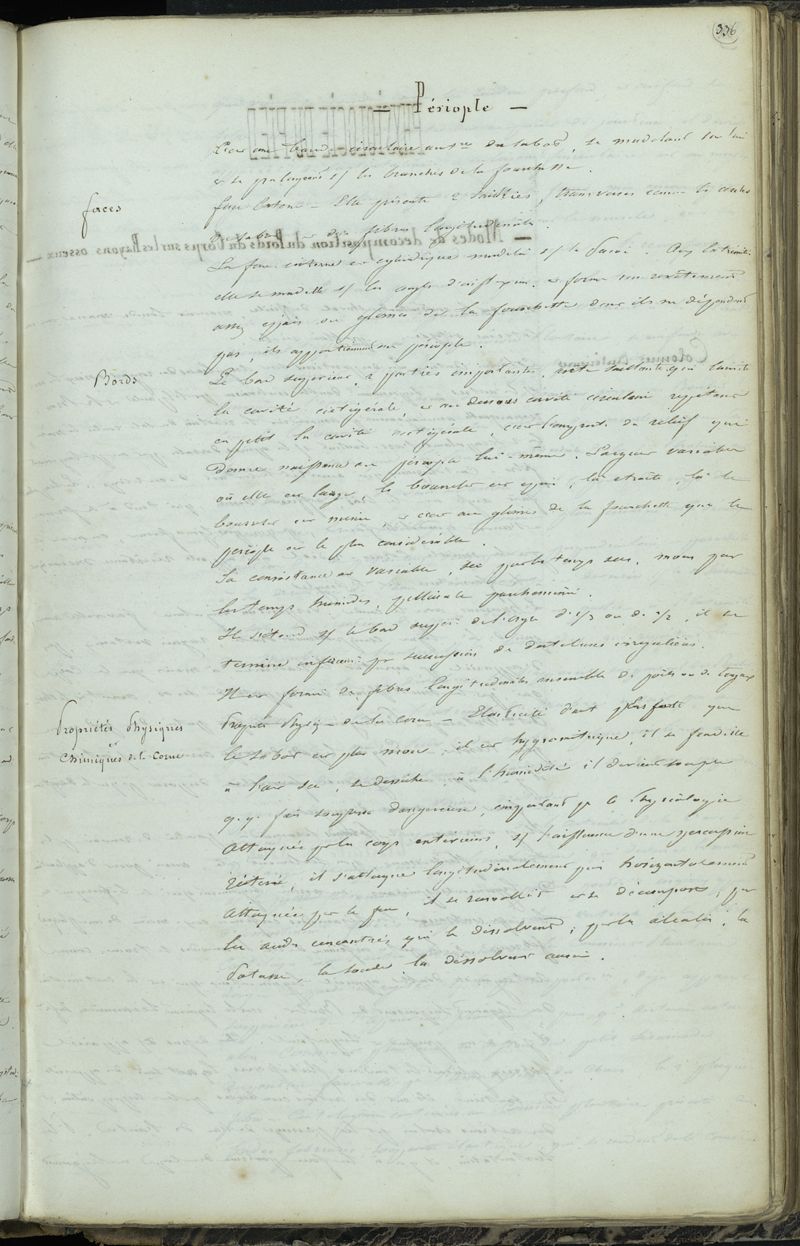 336
— Périople —
C'est une bande circulaire au du sabot, se modelant sur lui
et se prolongeant s/ les branches de la fourchette.
faces
face externe — Elle présente 2 saillies, transverses comme les cercles
du sabot et des fibres longitudinales.
La face interne est cylindrique modelée s/ le
elle se modelle s/ les angles d'inflexion, et forme un revêtement
assez épais aux glomes de la fourchette dont ils ne dépendent
pas, ils appartiennent au périople.
Bords
Le bord supérieur, 2 parties importantes, arête saillante qui limite
la cavité cutigérale, et au dessous cavité circulaire répétant
en petit la cavité cutigérale, c'est l'empreinte du relief qui
donne naissance au périople lui-même. Largeur variable
où elle est large, le bourrelet est épais, là étroite, là le
bourrelet est mince et c'est aux glomes de la fourchette que le
périople est le plus considérable.
Sa consistance est variable, sec par les temps secs, mou par
les temps humides, pellicule parcheminée.
Il s'étend s/ le bord supér. de l'ongle d'1/3 ou de 1/2, il se
termine inférieur. par succession de dentelures irrégulières.
Il est formé de fibres longitudinales ensemble de poils ou de tuyaux
Propriétés Physiques
et
Chimiques de la Corne
Propriet. Physiq — de la corne — Elasticité d'aut. plus forte que
le sabot est plus mou, il est hygrométrique, il se fendille
à l'air sec, se dessèche, à l'humidité il devient souple
q.q. fois souplesse dangereuse, important pr la Physiologie
Attaquée par les corps extérieurs, s/ l'influence d'une percussion
réitérée, il s'attaque longitudinalement puis horizontalement
Attaquée par le feu, il se ramollit et se décompose, par
les acides concentrés qui le dissolvent, par les alcalis, la
Potasse, la soude la dissolvent aussi.